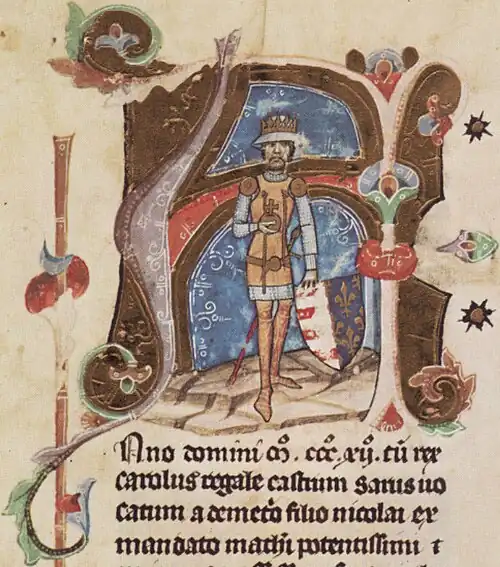 ANno domini mͦ. cccͦ. xijͦ. cū rex
carolus regale castrum Sarus uo
catum a demet͛o filio nicolai ex
mandato math̄i potentissimi ⁊